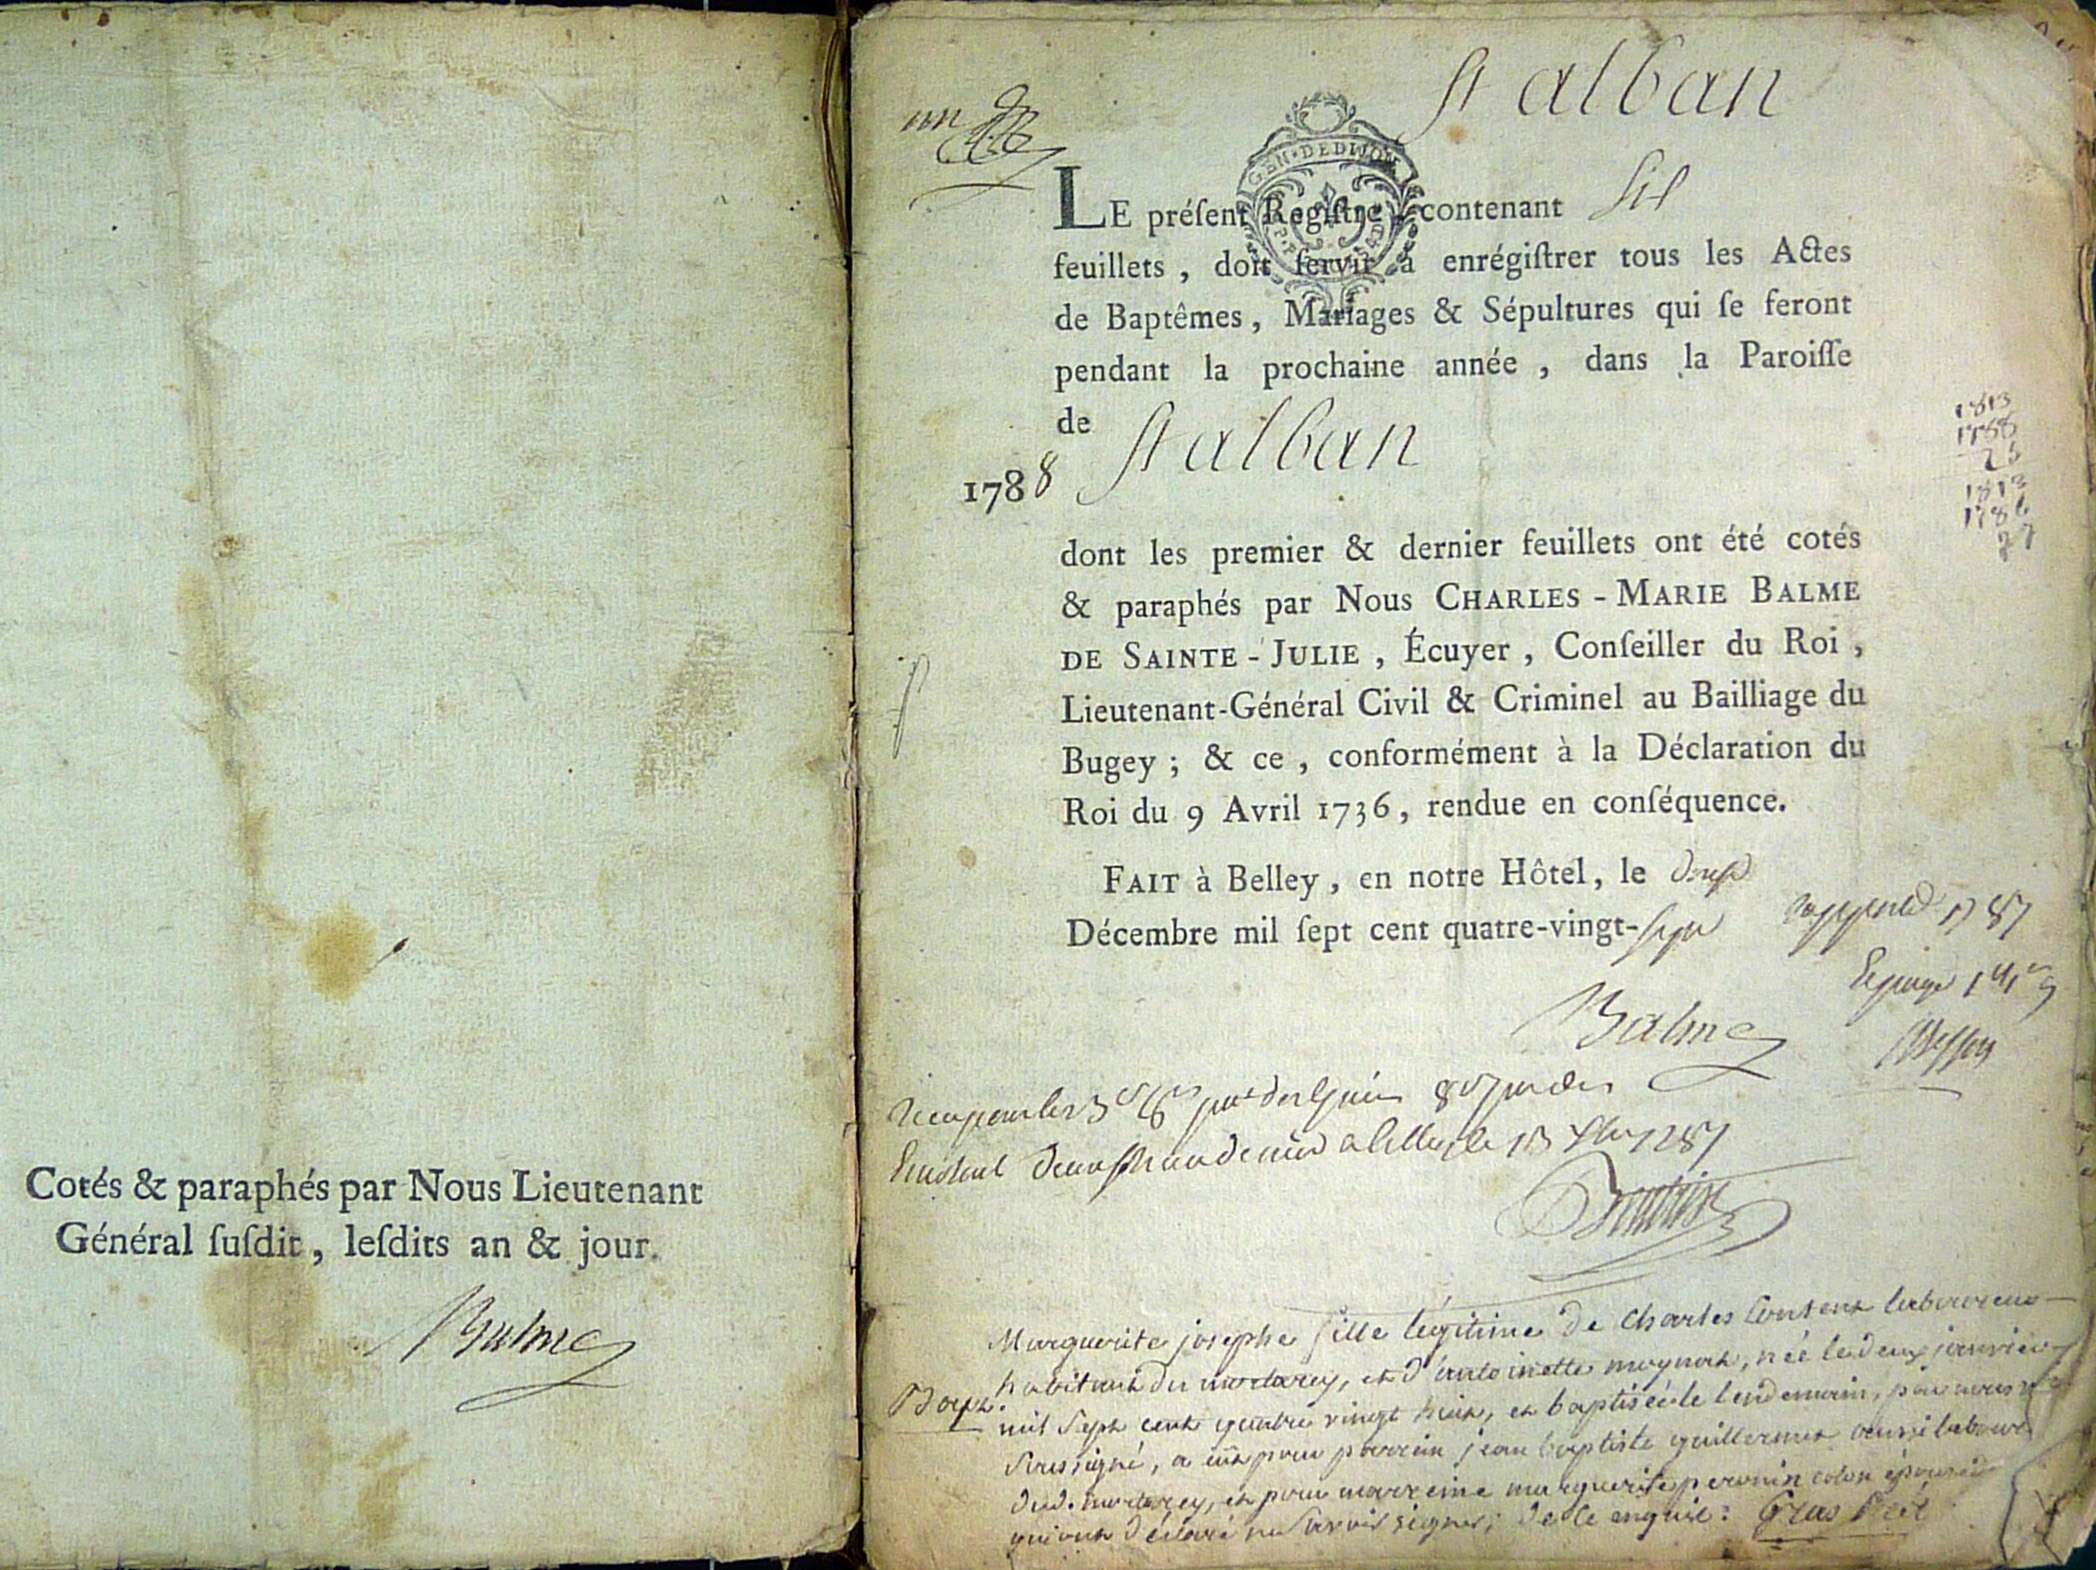 Cotés & paraphés par Nous Lieutenant
Général ſuſdit, leſdits an & jour.
Balme
St alban
un
GEN. DE DIJON
LE préſent Regiſtre, contenant Six
feuillets, doit ſervir à enrégiſtrer tous les Actes
de Baptêmes, Mariages & Sépultures qui ſe feront
pendant la prochaine année, dans la Paroiſſe
de St alban
1788
dont les premier & dernier feuillets ont été cotés
& paraphés par Nous CHARLES-MARIE BALME
DE SAINTE-JULIE, Écuyer, Conſeiller du Roi,
Lieutenant-Général Civil & Criminel au Bailliage du
Bugey; & ce, conformément à la Déclaration du
Roi du 9 Avril 1736, rendue en conſéquence.
FAIT à Belley, en notre Hôtel, le
Décembre mil ſept cent quatre-vingt-sept
Balme
1813
1788
25
1813
1786
27
1787
Bapt.
Marguerite josephe fille légitime de Charles laboureur
habitant du mortarey, et d'antoinette moynat, née le deux janvier
mil sept cent quatre vingt huit, et baptisée le lendemain, par nous
soussigné, a eu pour parrein jean baptiste guillermet aussi labour
dud. mortarey, et pour marreine marguerite peronin
qui ont déclaré ne savoir signer; de ce enquis: Gras